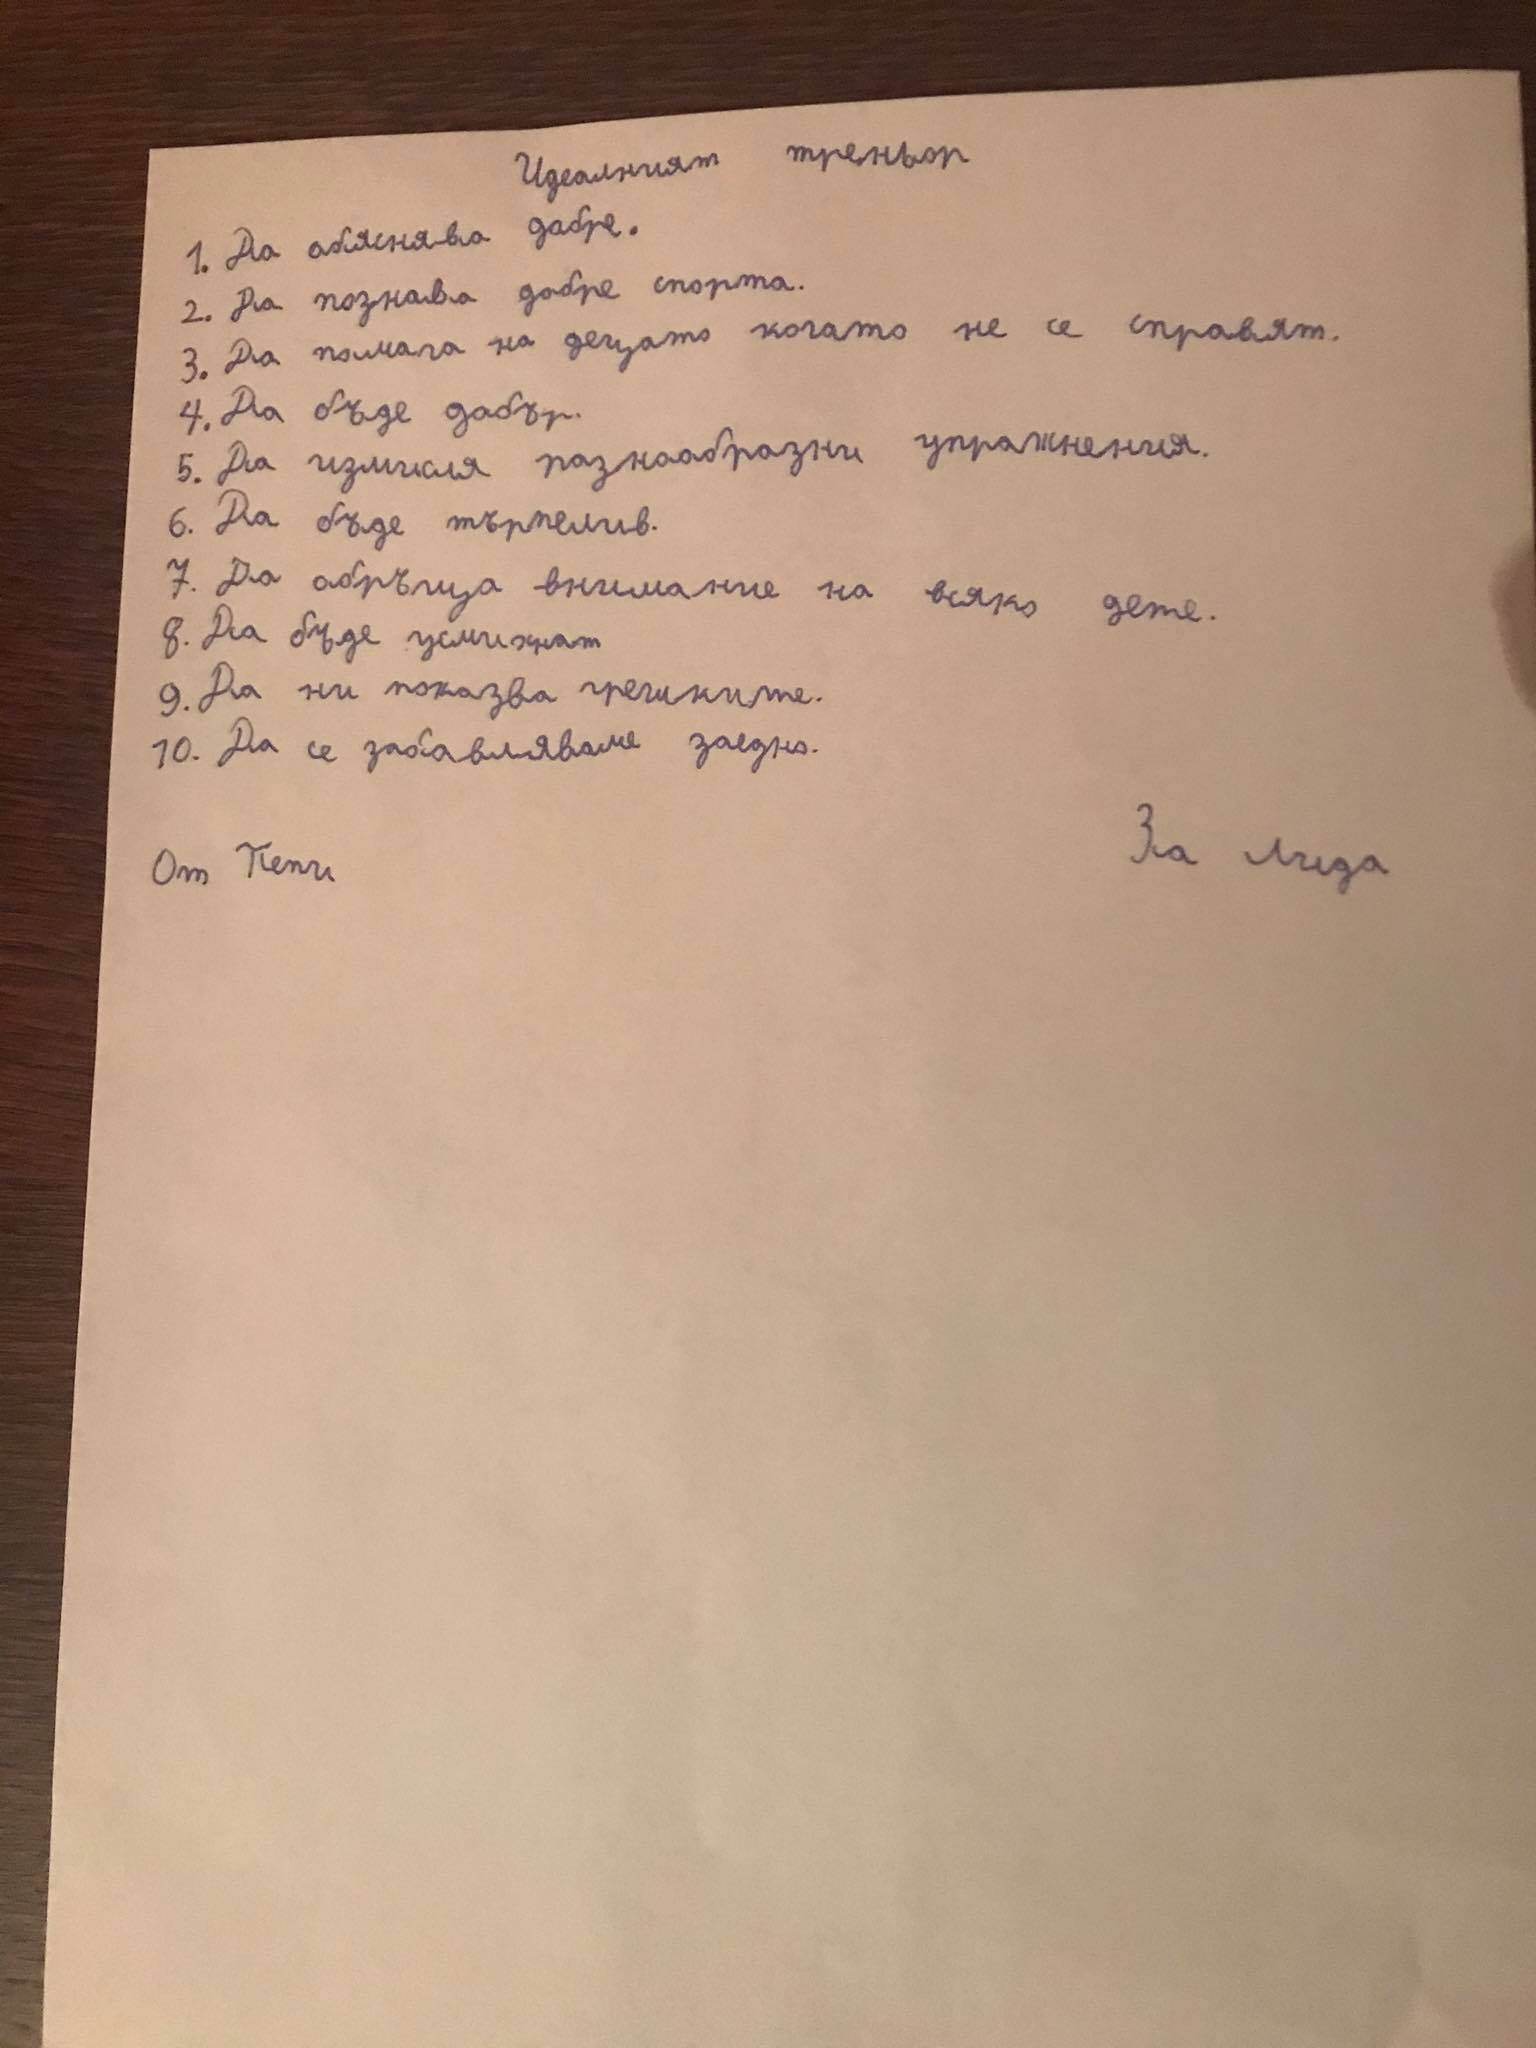 Идеалният треньор
1. Да обяснява добре.
2. Да познава добре спорта.
3. Да помага на децата когато не се справят.
4. Да бъде добър.
5. Да измисля разнообразни упражнения.
6. Да бъде търпелив.
7. Да обръща внимание на всяко дете.
8. Да бъде усмихнат
9. Да ни показва грешките.
10. Да се забавляваме заедно.
От Пепи
За Лида